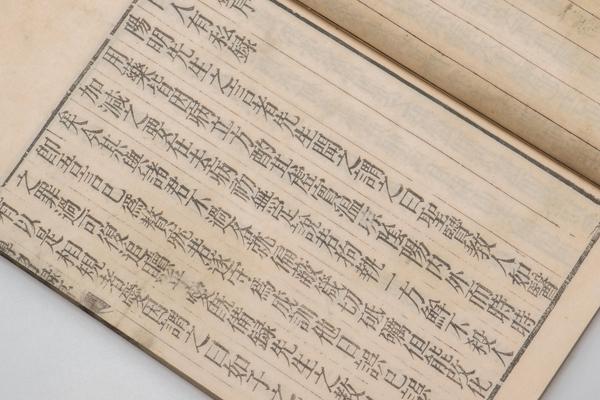 人有私錄
陽明先生之言者先生聞之謂之曰聖賢敎人如醫
用藥皆因病立方酌其虛實溫涼陰陽內外而時時
加減之要在去病初無定說若拘執一方鮮不殺人
矣今某與諸君不過各就偏蔽箴切砥礪但能改化
卽吾言已爲贅疣若遂守爲成訓他日誤己誤
之罪過可復追贖乎愛旣備錄先生之敎
有以是相規者愛因謂之曰如子之